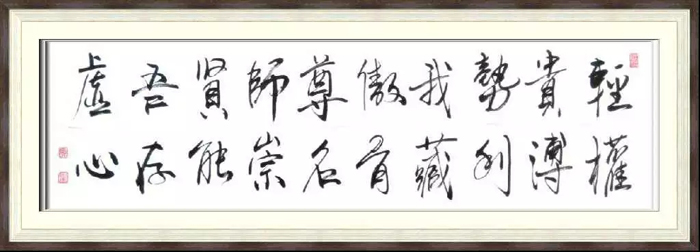 輕權
貴溥
勢利
我藏
傲骨
尊名
師崇
賢能
吾存
虛心